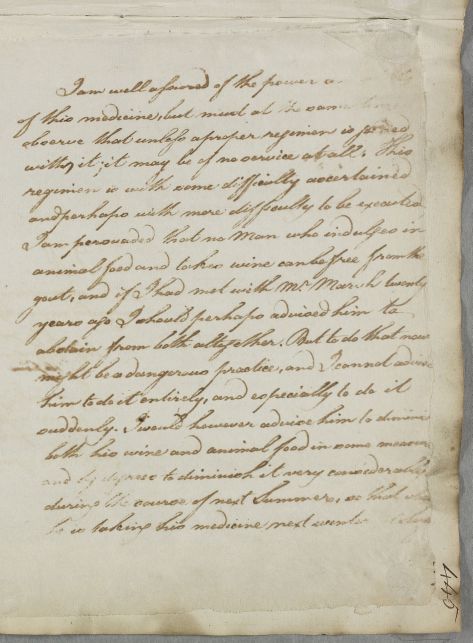 I am well assured of the power a
of this medicine, but must at the same time
observe that unless a proper regimen is joined
with it; it may be of no service at all. This
regimen is with some difficulty ascertained
and perhaps with more difficulty to be executed
I am persuaded that no Man who indulges in
animal food and takes wine can be free from the
gout, and if I had met with Mr. Marsh twenty
years ago I should perhaps advised him to
abstain from both altogether. But to do that now
might be a dangerous practice, and I cannot advise
him to do it entirely, and especially to do it
suddenly. I would however advise him to dimini
both his wine and animal food in some measure
and by degrees to diminish it very considerably
during the course of next Summer, so that when
he is taking his medicine next winter
446